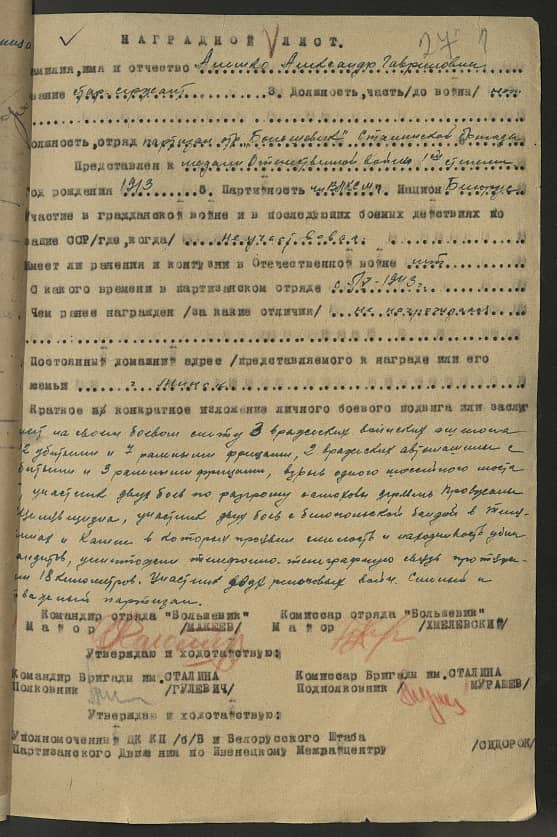 НАГРАДНОЙ ЛИСТ.
27
амилия, имя и отчество Александр Гаврилович
вание Гар. сержант 3. Должность, часть /до войны/ нет
олжность, отряд партизан отр. "Большевик" Сталинской бригады
Представлен к медали Отечественной войны 1ой степени
год рождения 1913 5. Партийность ВЛКСМ Национ
Участие в гражданской войне и в последующих боевых действиях по
защите ССР/где, когда/ не участвовал.
Имеет ли ранения и контузии в Отечественной войне нет
С какого времени в партизанском отряде с 1943 г.
Чем ранее награжден /за какие отличия/ не награждался
Постоянный домашний адрес /представляемого к награде или его
семьи г. Минск
Краткое конкретное изложение личного боевого подвига или заслуг
на своем боевом счету 3 вражеских воинских эшелона
2 убитыми и 7 ранеными фрицами, 2 вражеских автомашины с
битыми и 3 ранеными фрицами, взрыв одного шоссейного моста
участник двух боев по разгрому
участник двух боев с белопольской бандой в
и Камень в которых проявил смелость и находчивость убил
бандитов, уничтожено телефонно-телеграфную связь
18 километров. Участник двух рельсовых войн. Смелый и
партизан.
Командир отряда "Большевик" Комиссар отряда "Большевик"
Майор /МАКЕЕВ/ Майор /ХМЕЛЕВСКИЙ/
Утверждаю и ходотайствую:
Командир Бригады им. СТАЛИНА Комиссар Бригады им. СТАЛИНА
Полковник /ГУЛЕВИЧ/ Подполковник / МУРАШЕВ/
Утверждаю и ходотайствую:
Уполномоченный ЦК КП /б/Б и Белорусского Штаба
Партизанского Движения по Ивенецкому Межрайцентру /СИДОРОК/